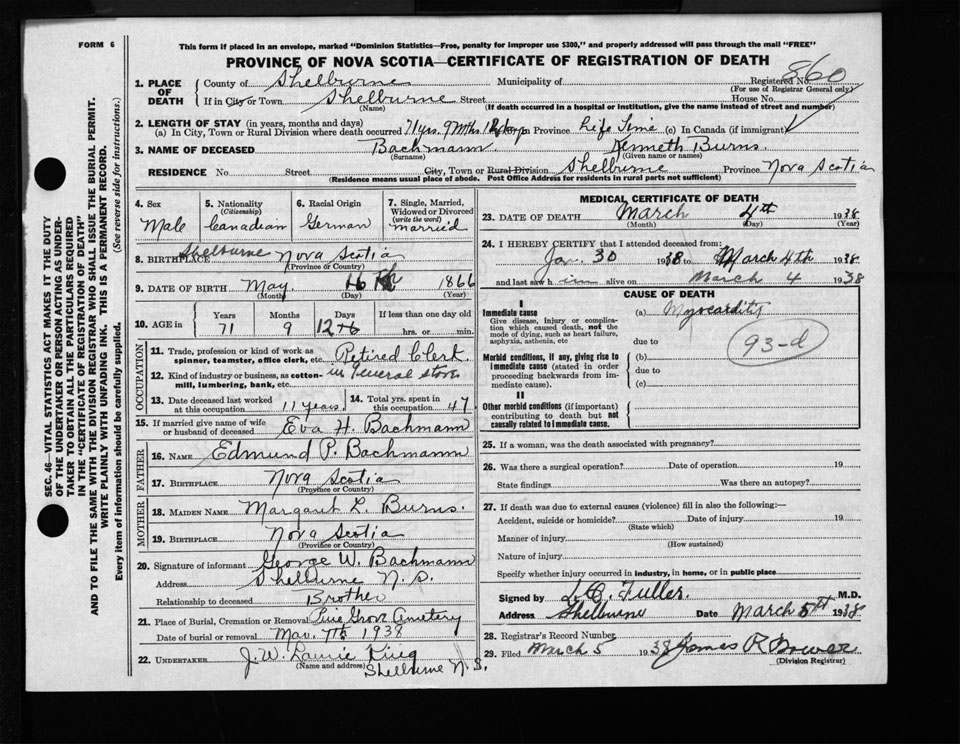 FORM 6
This form if placed in an envelope, marked "Dominion Statistics—Free, penalty for improper use $300," and properly addressed will pass through the mail "FREE"
PROVINCE OF NOVA SCOTIA—CERTIFICATE OF REGISTRATION OF DEATH
SEC. 46—VITAL STATISTICS ACT MAKES IT THE DUTY
OF THE UNDERTAKER OR PERSON ACTING AS UNDER-
TAKER TO OBTAIN ALL THE PARTICULARS REQUIRED
IN THE "CERTIFICATE OF REGISTRATION OF DEATH"
AND TO FILE THE SAME WITH THE DIVISION REGISTRAR WHO SHALL ISSUE THE BURIAL PERMIT.
WRITE PLAINLY WITH UNFADING INK. THIS IS A PERMANENT RECORD.
Every item of information should be carefully supplied. (See reverse side for instructions.)
1. PLACE OF DEATH
County of Shelburne Municipality of Registered No. 860
(For use of Registrar General only)
If in City or Town Shelburne Street House No.
(Name) (If death occurred in a hospital or institution, give the name instead of street and number)
2. LENGTH OF STAY (in years, months and days)
(a) In City, Town or Rural Division where death occurred 71 yrs. 9 Mths in Province Life Time (c) In Canada (if immigrant)
3. NAME OF DECEASED Bachmann Kenneth Burns.
(Surname) (Given name or names)
RESIDENCE No. Street City, Town or Rural Division Shelburne Province Nova Scotia
(Residence means usual place of abode. Post Office Address for residents in rural parts not sufficient)
4. Sex
Male
5. Nationality
(Citizenship)
Canadian
6. Racial Origin
German
7. Single, Married,
Widowed or Divorced
(write the word)
Married
8. BIRTHPLACE Shelburne Nova Scotia
(Province or Country)
9. DATE OF BIRTH May 16 1866
(Month) (Day) (Year)
10. AGE in
Years Months Days If less than one day old
71 9 hrs. or min.
OCCUPATION
11. Trade, profession or kind of work as
spinner, teamster, office clerk, etc. Retired Clerk.
12. Kind of industry or business, as cotton-
mill, lumbering, bank, etc. in General Store
13. Date deceased last worked
at this occupation 11 years
14. Total yrs. spent in
this occupation 47.
15. If married give name of wife
or husband of deceased Eva H. Bachmann
FATHER
16. NAME Edmund P. Bachmann
17. BIRTHPLACE Nova Scotia
(Province or Country)
MOTHER
18. MAIDEN NAME Margaret L. Burns.
19. BIRTHPLACE Nova Scotia
(Province or Country)
20. Signature of informant George W. Bachmann
Address Shelburne N.S.
Relationship to deceased Brother
21. Place of Burial, Cremation or Removal Pine Grove Cemetery
Date of burial or removal Mar. 7th 1938
22. UNDERTAKER J. W. Laurie King
(Name and address) Shelburne N.S.
MEDICAL CERTIFICATE OF DEATH
23. DATE OF DEATH March 4th 1938
(Month) (Day) (Year)
24. I HEREBY CERTIFY that I attended deceased from:
Jan. 30 1938 to March 4th 1938
and last saw h im alive on March 4 1938
CAUSE OF DEATH
I
Immediate cause
Give disease, injury or complica-
tion which caused death, not the
mode of dying, such as heart failure,
asphyxia, asthenia, etc
(a) Myocarditis
due to
93-d
Morbid conditions, if any, giving rise to
immediate cause (stated in order
proceeding backwards from im-
mediate cause).
(b)
due to
(c)
II
Other morbid conditions (if important)
contributing to death but not
causally related to immediate cause.
25. If a woman, was the death associated with pregnancy?
26. Was there a surgical operation? Date of operation 19
State findings Was there an autopsy?
27. If death was due to external causes (violence) fill in also the following:—
Accident, suicide or homicide? Date of injury 19
(State which)
Manner of injury
(How sustained)
Nature of injury
Specify whether injury occurred in industry, in home, or in public place
Signed by Fuller. M.D.
Address Shelburne Date March 5th 1938
28. Registrar's Record Number
29. Filed March 5 1938 James R Bower
(Division Registrar)